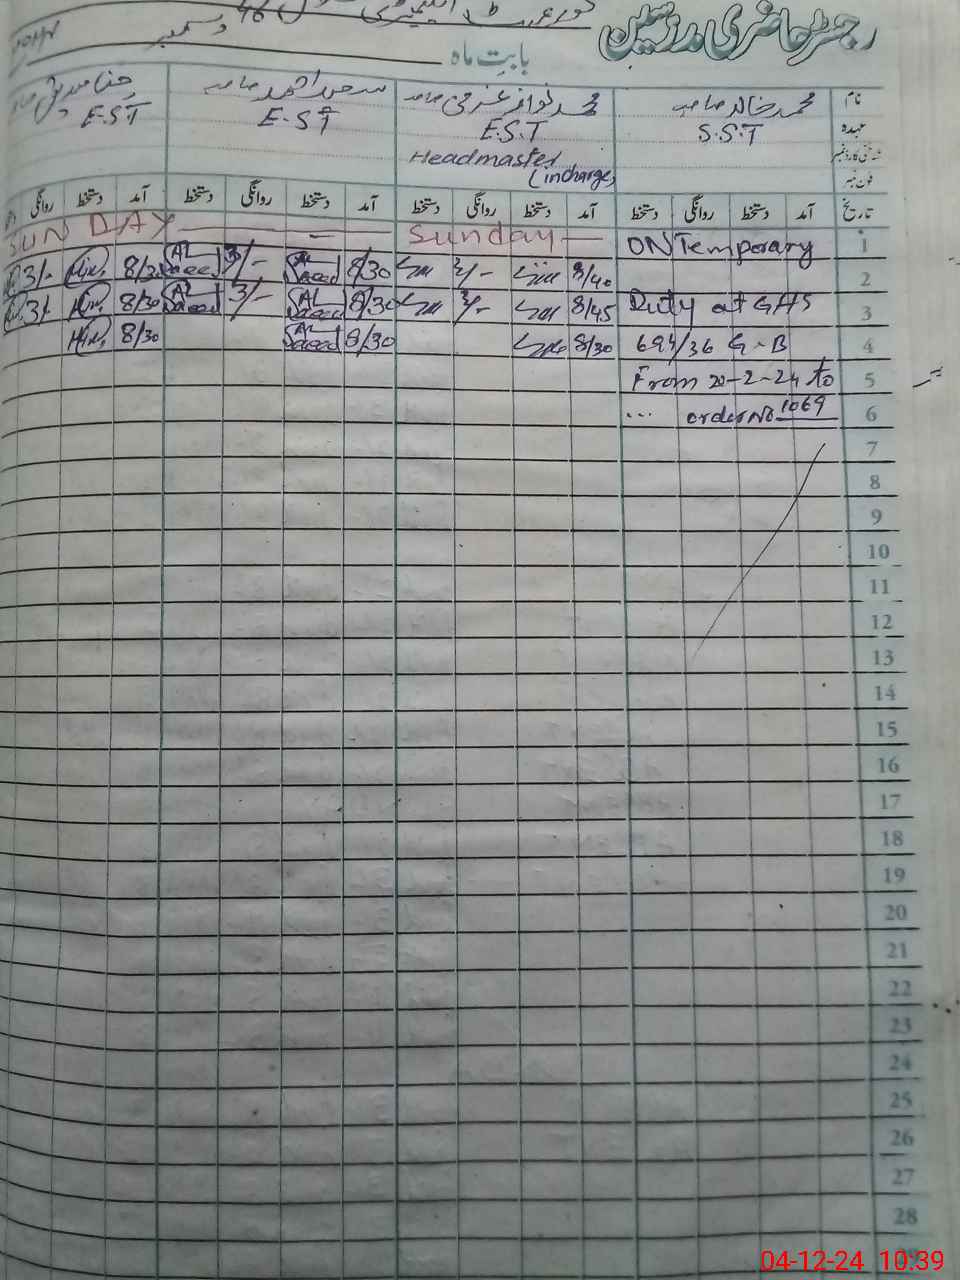 رجسٹر حاضری مدرسین
بابت ماہ دسمبر
نام محمد خالد صاحب محمد نواز صاحب سعید احمد صاحب
عہدہ S.S.T E.S.T E.S.T E.S.T
Headmaster
(incharge)
فون نمبر
تاریخ آمد دستخط روانگی دستخط آمد دستخط روانگی دستخط آمد دستخط روانگی دستخط آمد دستخط روانگی
1 ON Temporary Sunday SUNDAY
2 8/40 8/30 Saeed 3/- Saeed 8/30 3/-
3 Duty at GHS 8/45 8/30 Saeed 3/- Saeed 8/30 3/-
4 691/36 G-B 8/30 8/30 Saeed 8/30
5 From 20-2-24 to
6 ... order No 1069
7
8
9
10
11
12
13
14
15
16
17
18
19
20
21
22
23
24
25
26
27
28
29
04-12-24 10:39